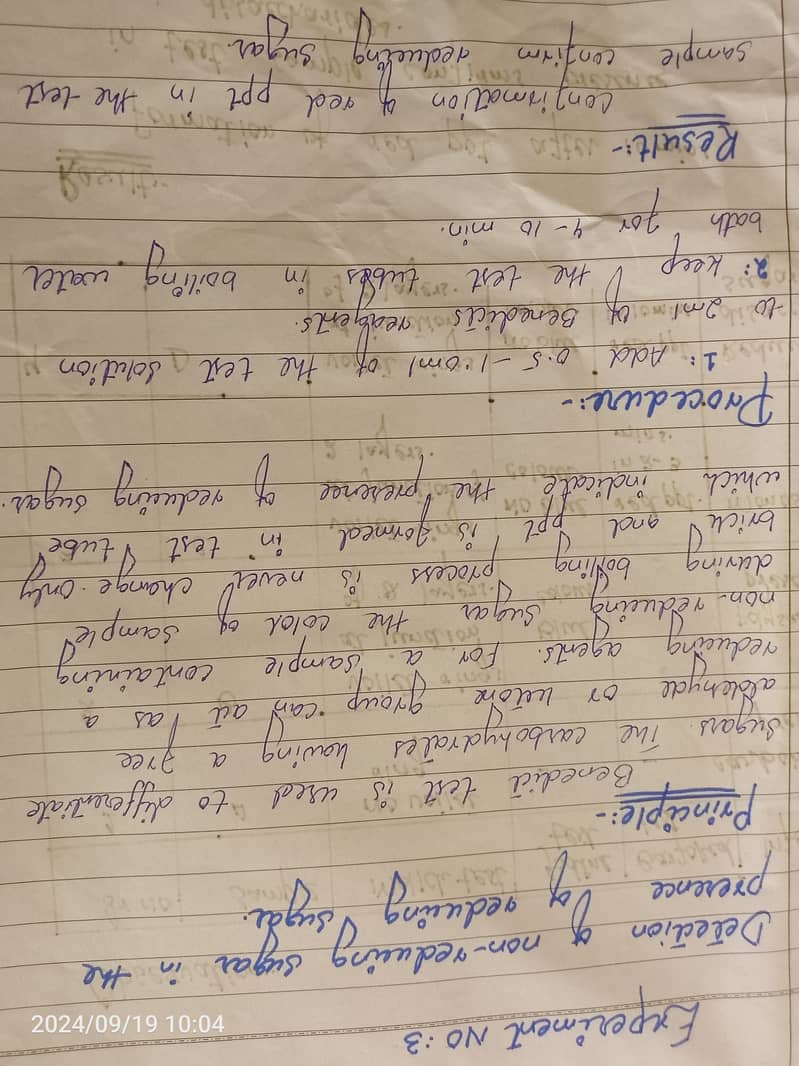 Experiment NO:3
Detection of non-reducing sugar in the
presence of reducing sugar.
Principle:-
Benedict test is used to differentiate
sugars. The carbohydrates having a free
aldehyde or ketone group can act as a
reducing agents. For a sample containing
non-reducing sugar the color of sample
during boiling process is never change. only
brick and ppt is formed in test tube
which indicate the presence of reducing sugar.
Procedure:-
1: Add 0.5-1.0ml of the test solution
to 2ml of Benedicts reagents.
2: Keep the test tubes in boiling water
bath for 4-10 min.
Result:-
confirmation of red ppt in the test
sample confirm reducing sugar.
2024/09/19 10:04